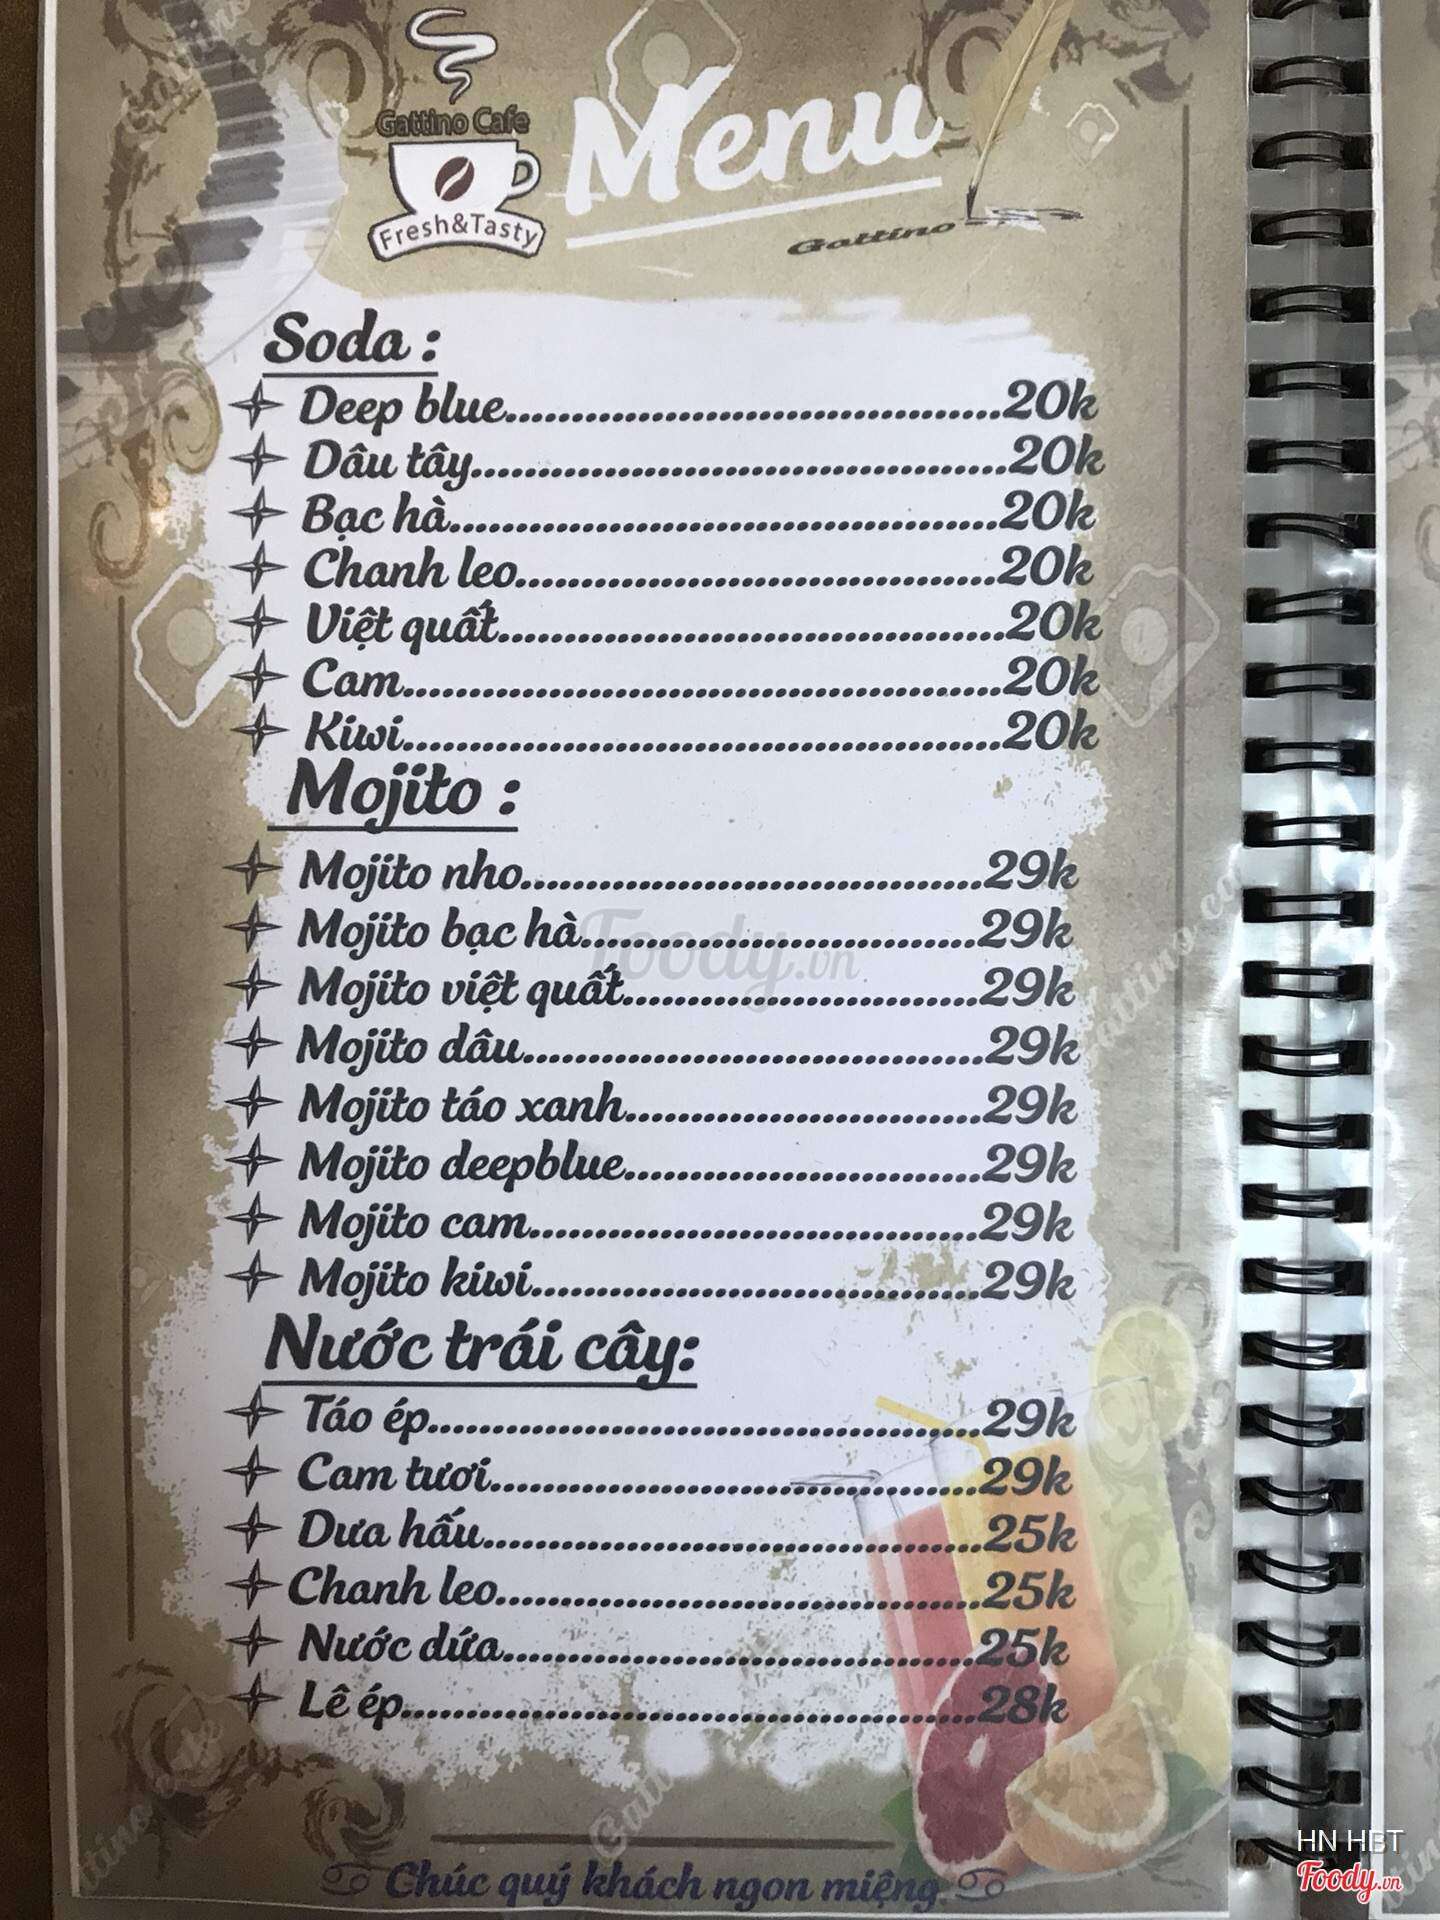 Gattino Cafe
Fresh&Tasty
Menu
Gattino
Soda :
Deep blue......................................20k
Dâu tây.........................................20k
Bạc hà..........................................20k
Chanh leo.....................................20k
Việt quất.......................................20k
Cam..............................................20k
Kiwi..............................................20k
Mojito :
Mojito nho...................................29k
Mojito bạc hà..............................29k
Mojito việt quất...........................29k
Mojito dâu...................................29k
Mojito táo xanh...........................29k
Mojito deepblue...........................29k
Mojito cam..................................29k
Mojito kiwi..................................29k
Nước trái cây:
Táo ép..........................................29k
Cam tươi.....................................29k
Dưa hấu......................................25k
Chanh leo.....................................25k
Nước dứa....................................25k
Lê ép............................................28k
Chúc quý khách ngon miệng
Foody.vn
HN HBT
Foody.vn